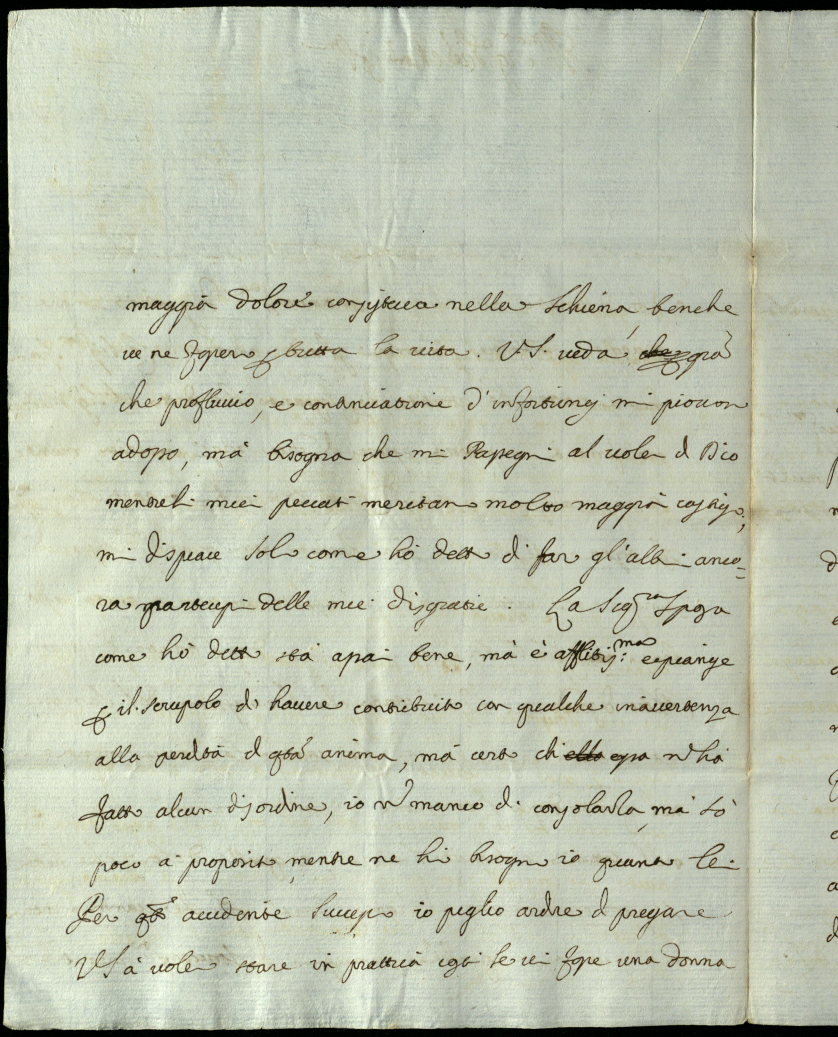 maggior dolore consisteva nella schiena, benche
ve ne fosser p tutta la vita. VS. veda
che profluvio, e continuatione d'infortunij mi piovon
adosso, mà bisogna che mi rassegni al voler d Dio
mentre li miei peccati meritan molto maggior castigo;
mi dispiace solo come hò detto di far gl'altri anco=
ra partecipi delle mie disgratie. La Sig.ra Sposa
come hò detto stà assai bene, mà è afflitis.ma e piange
p il scrupolo di havere contribuito con qualche inavertenza
alla perdita d qsta anima, mà certo ch essa nō hà
fatto alcun disordine, io nō manco di consolarla, mà sò
poco a proposito mentre ne hò bisogno io quanto lei
Per qsto accidente successo io piglio ardire d pregare
VS à voler stare in prattica costì se vi fosse una donna